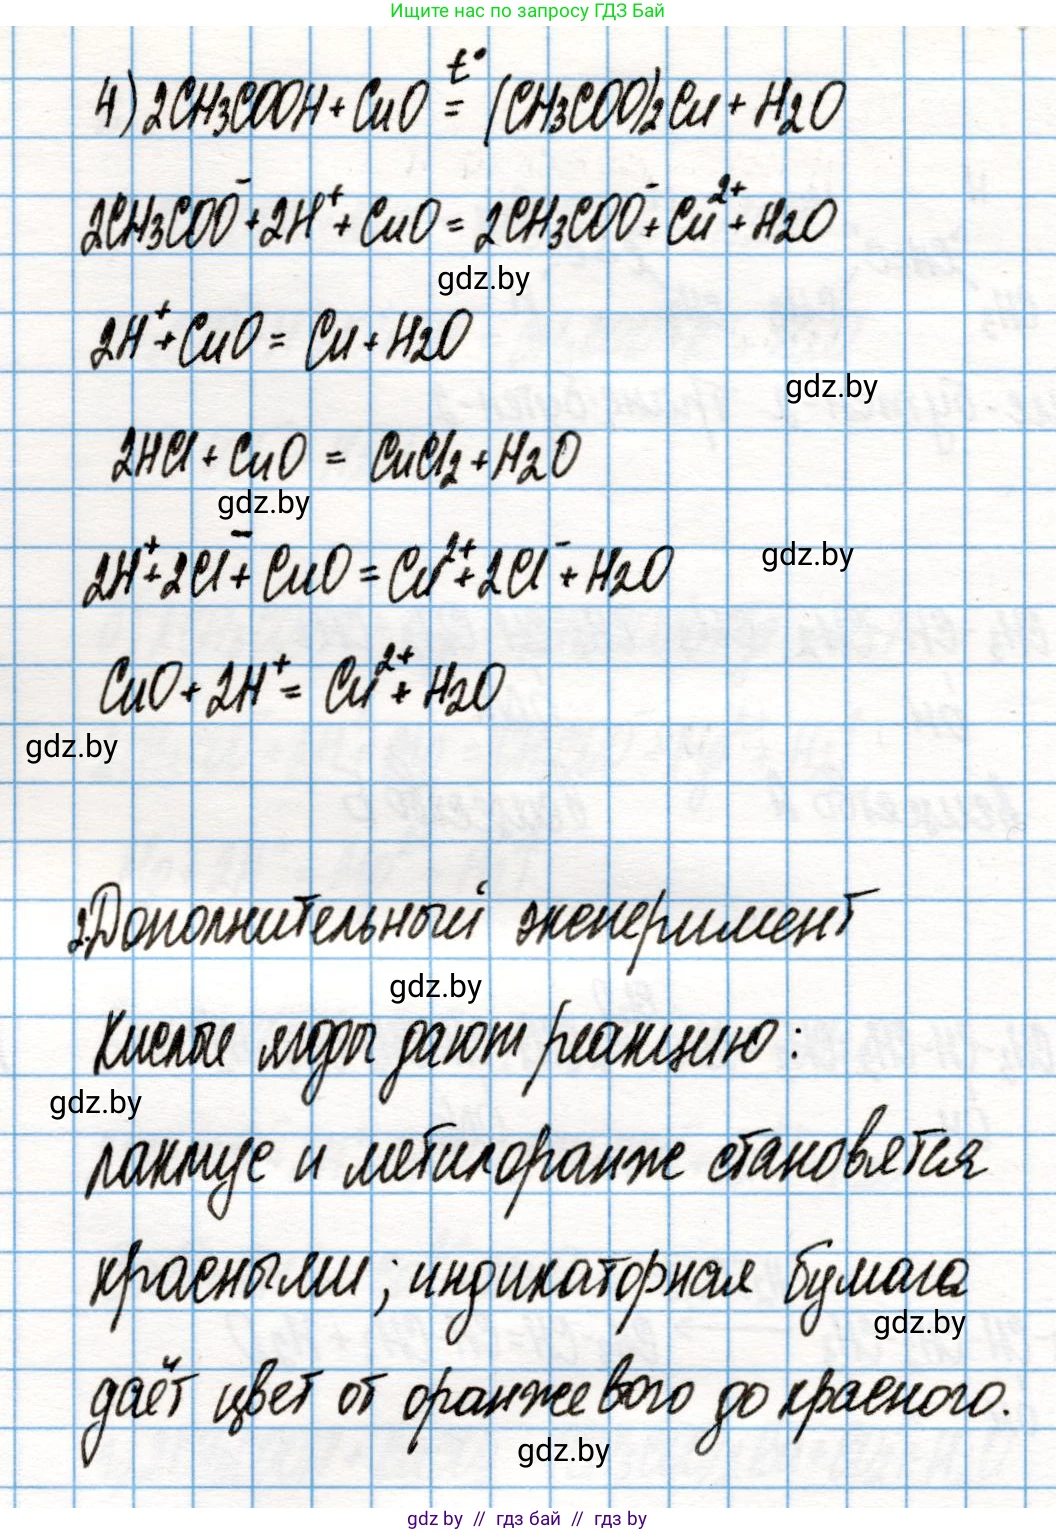 Ищите нас по запросу ГДЗ Бай
4) 2CH3COOH + CuO t°= (CH3COO)2Cu + H2O
2CH3COO⁻ + 2H⁺ + CuO = 2CH3COO⁻ + Cu²⁺ + H2O
gdz.by
2H⁺ + CuO = Cu + H2O
gdz.by
2HCl + CuO = CuCl2 + H2O
gdz.by
2H⁺ + 2Cl⁻ + CuO = Cu²⁺ + 2Cl⁻ + H2O
gdz.by
CuO + 2H⁺ = Cu²⁺ + H2O
gdz.by
2. Дополнительный эксперимент
gdz.by
Кислые ягоды дают реакцию:
gdz.by
лакмус и метилоранж становятся
красными; индикаторная бумага
gdz.by
даёт цвет от оранжевого до красного.
gdz.by
gdz by // гдз бай // gdz by